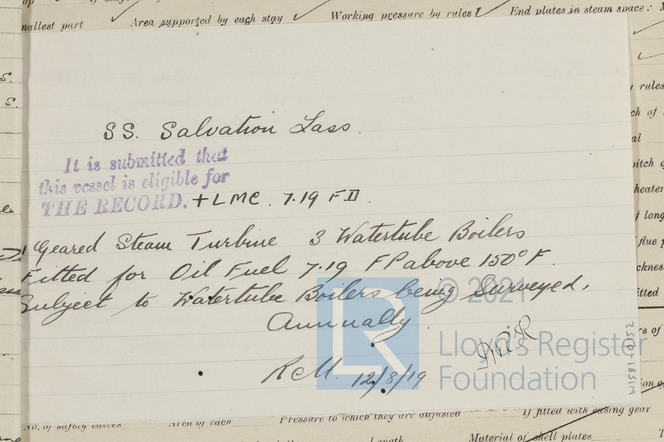 mallest part Area supported by each stay Working pressure by rules End plates in steam space:
SS. Salvation Lass.
It is submitted that
this vessel is eligible for
THE RECORD. + LMC. 7.19 F.D.
Geared Steam Turbine 3 Watertube Boilers
Fitted for Oil Fuel 7.19 FP above 150°F.
Subject to Watertube Boilers being Surveyed,
Annually
12/8/19
© 2021
Lloyd's Register
Foundation
W1581-0152
No. of safety valves Area of each Pressure to which they are adjusted If fitted with easing gear
Length Material of shell plates